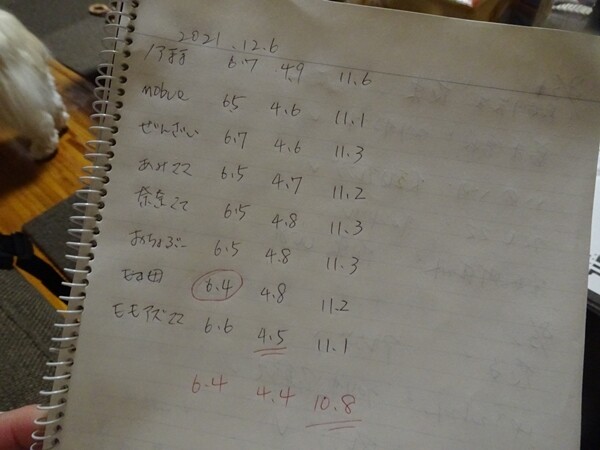 2021.12.6
6.7 4.9 11.6
nobue 65 4.6 11.1
ぜんざい 6.7 4.6 11.3
あみママ 6.5 4.7 11.2
奈良ママ 6.5 4.8 11.3
おちょぶー 6.5 4.8 11.3
6.4 4.8 11.2
モモアズママ 6.6 4.5 11.1
6.4 4.4 10.8